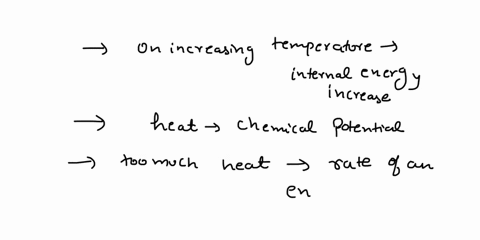 → On increasing temperature →
internal energy
increase
→ heat → chemical potential
→ too much heat → rate of an
en